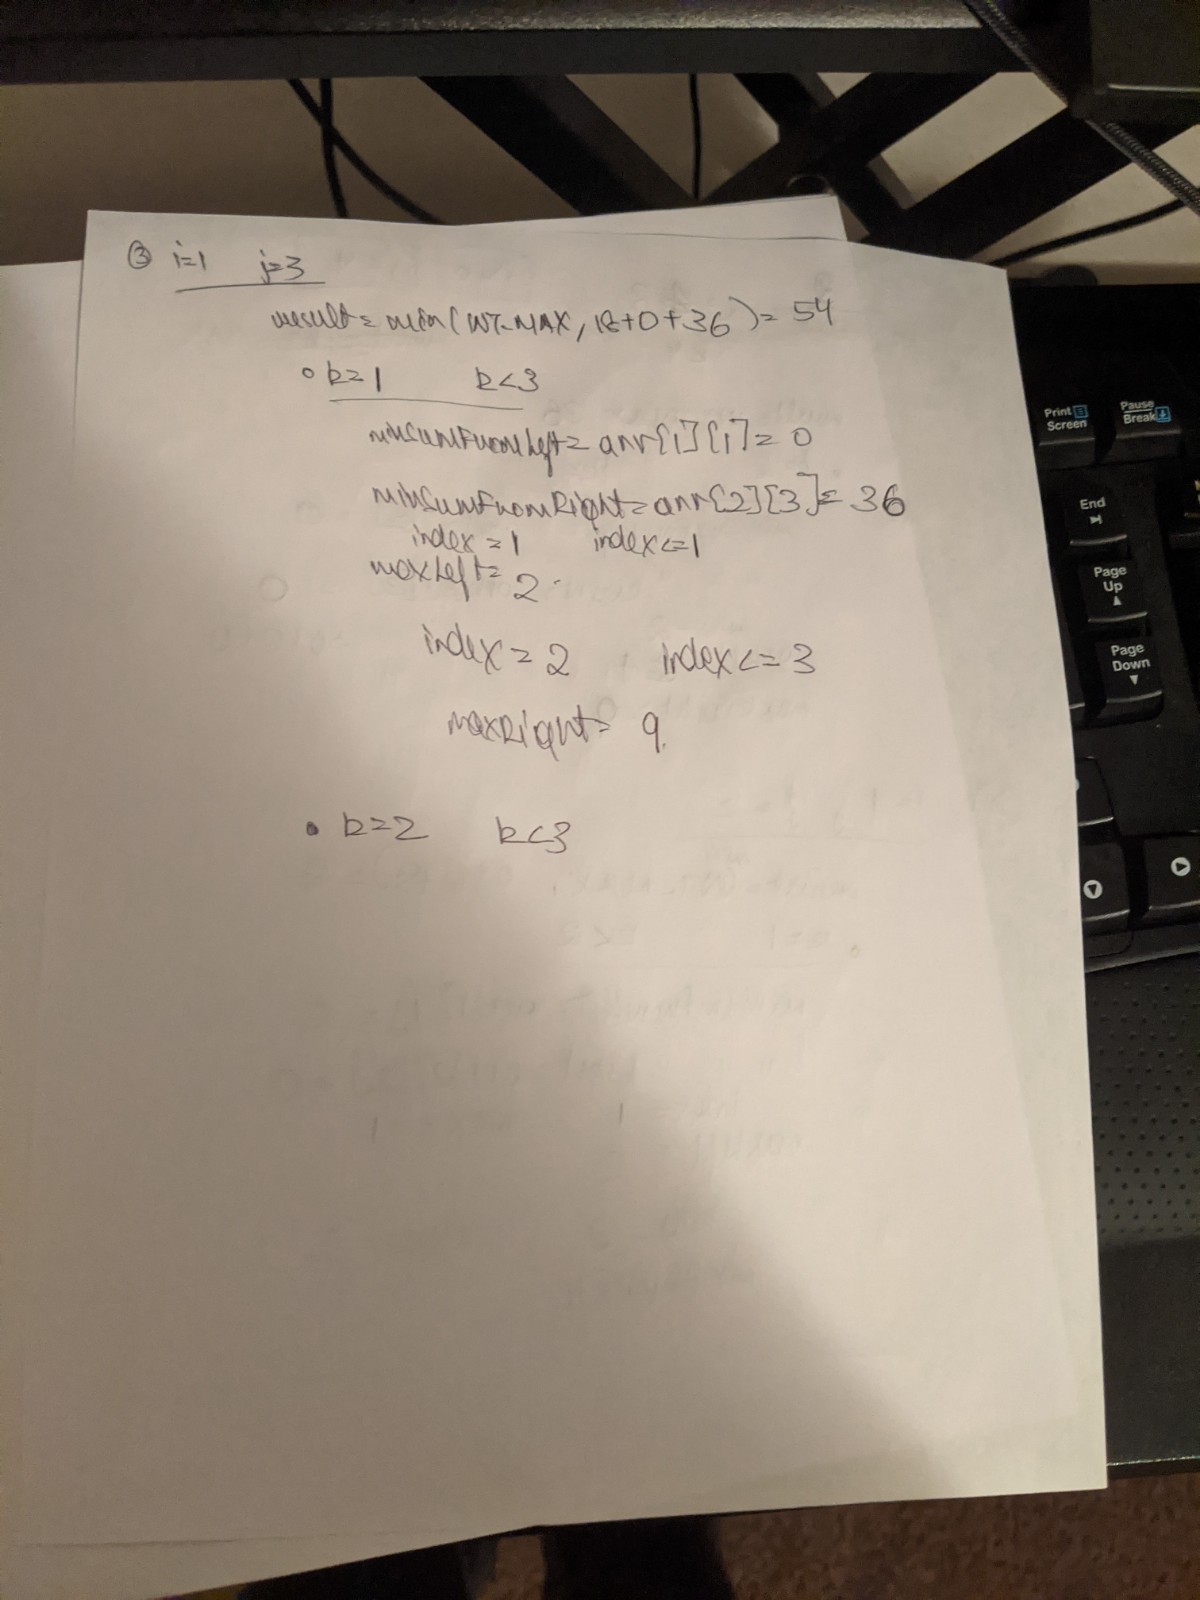 ③ i=1 j=3
result = min(INT_MAX, 18+0+36) = 54
k=1 k<3
minSumFromLeft = arr[1][1] = 0
minSumFromRight = arr[2][3] = 36
index = 1 index<=1
maxLeft = 2
index = 2 index <= 3
maxRight = 9
k=2 k<3
Print Screen
Pause Break
End
Page Up
Page Down